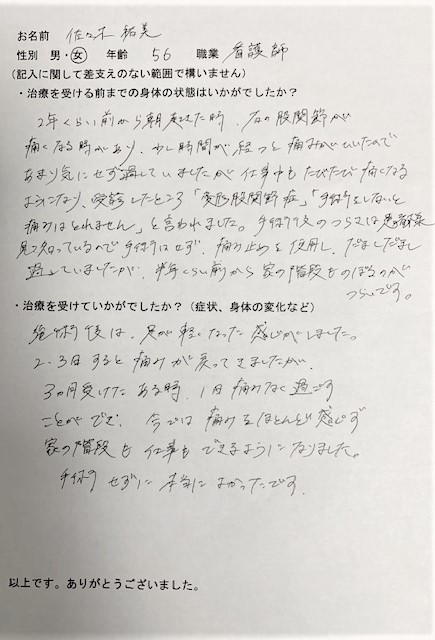 お名前 佐々木 裕美
性別 男・女 年齢 56 職業 看護師
(記入に関して差支えのない範囲で構いません)
・治療を受ける前までの身体の状態はいかがでしたか?
2年くらい前から朝起きた時、右の股関節が
痛くなる時があり、少し時間が経つと痛みがひいたので
あまり気にせず過していましたが仕事中もたびたび痛くなる
ようになり、受診したところ「変形股関節症」「手術をしないと
痛みはとれません」と言われました。手術後のつらさは患者様
見て知っているので手術はせず、痛み止めを使用し、だましだまし
過していましたが、半年くらい前から家の階段をのぼるのが
つらいです。
・治療を受けていかがでしたか?(症状、身体の変化など)
施術後は、足が軽くなった感じがしました。
2、3日すると痛みが戻ってきましたが、
3ヵ月受けたある時、1日痛みなく過ごす
ことができ、今では痛みをほとんど感じず
家の階段も仕事もできるようになりました。
手術せずに本当によかったです。
以上です。ありがとうございました。